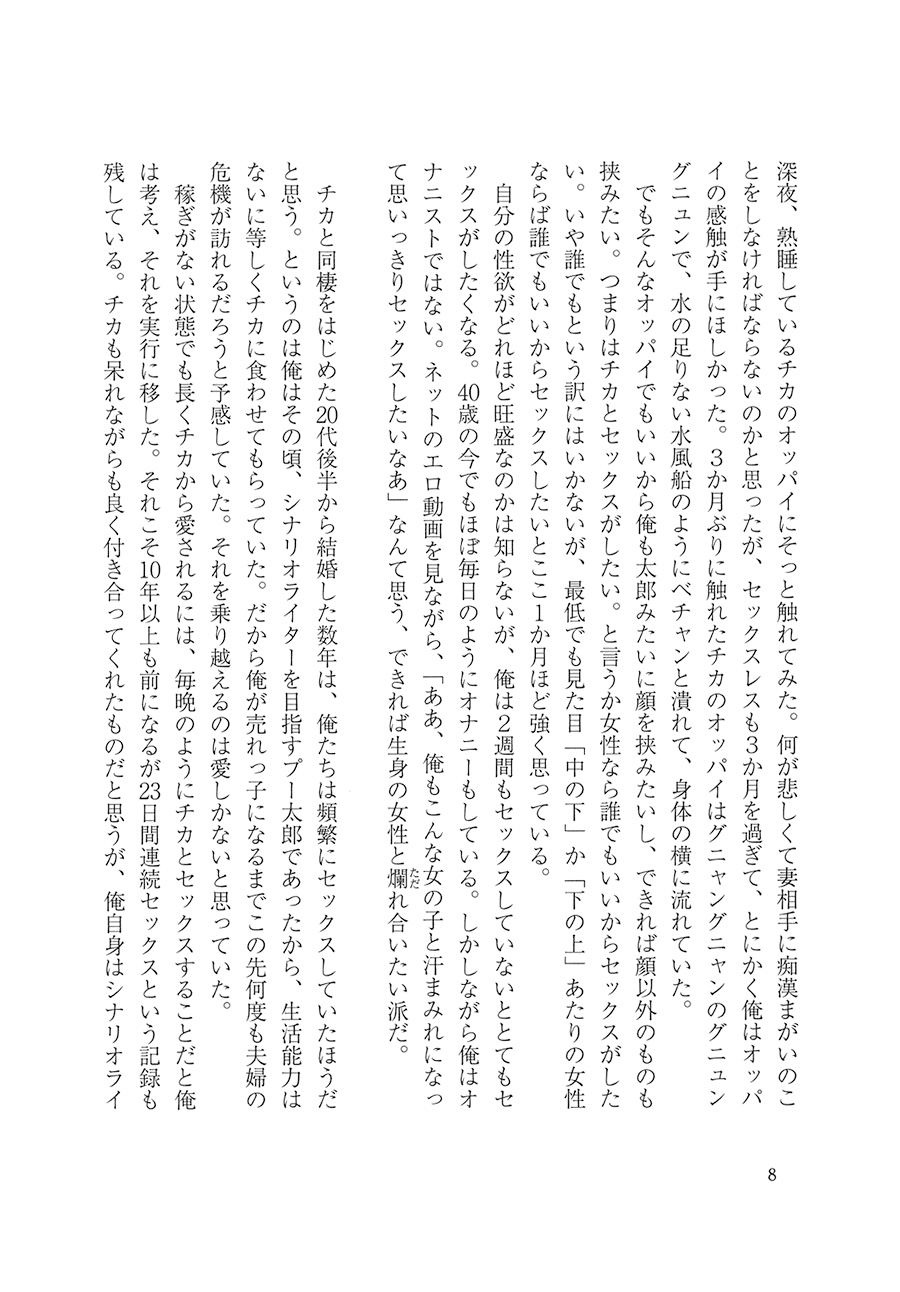 深夜、熟睡しているチカのオッパイにそっと触れてみた。何が悲しくて妻相手に痴漢まがいのこ
とをしなければならないのかと思ったが、セックスレスも３か月を過ぎて、とにかく俺はオッパ
イの感触が手にほしかった。３か月ぶりに触れたチカのオッパイはグニャングニャンのグニュン
グニュンで、水の足りない水風船のようにベチャンと潰れて、身体の横に流れていた。
でもそんなオッパイでもいいから俺も太郎みたいに顔を挟みたいし、できれば顔以外のものも
挟みたい。つまりはチカとセックスがしたい。と言うか女性なら誰でもいいからセックスがした
い。いや誰でもという訳にはいかないが、最低でも見た目「中の下」か「下の上」あたりの女性
ならば誰でもいいからセックスしたいとここ１か月ほど強く思っている。
自分の性欲がどれほど旺盛なのかは知らないが、俺は２週間もセックスしていないととてもセ
ックスがしたくなる。40歳の今でもほぼ毎日のようにオナニーもしている。しかしながら俺はオ
ナニストではない。ネットのエロ動画を見ながら、「ああ、俺もこんな女の子と汗まみれになっ
て思いっきりセックスしたいなあ」なんて思う、できれば生身の女性と爛れ合いたい派だ。
ただ
チカと同棲をはじめた20代後半から結婚した数年は、俺たちは頻繁にセックスしていたほうだ
と思う。というのは俺はその頃、シナリオライターを目指すプー太郎であったから、生活能力は
ないに等しくチカに食わせてもらっていた。だから俺が売れっ子になるまでこの先何度も夫婦の
危機が訪れるだろうと予感していた。それを乗り越えるのは愛しかないと思っていた。
稼ぎがない状態でも長くチカから愛されるには、毎晩のようにチカとセックスすることだと俺
は考え、それを実行に移した。それこそ10年以上も前になるが23日間連続セックスという記録も
残している。チカも呆れながらも良く付き合ってくれたものだと思うが、俺自身はシナリオライ
8